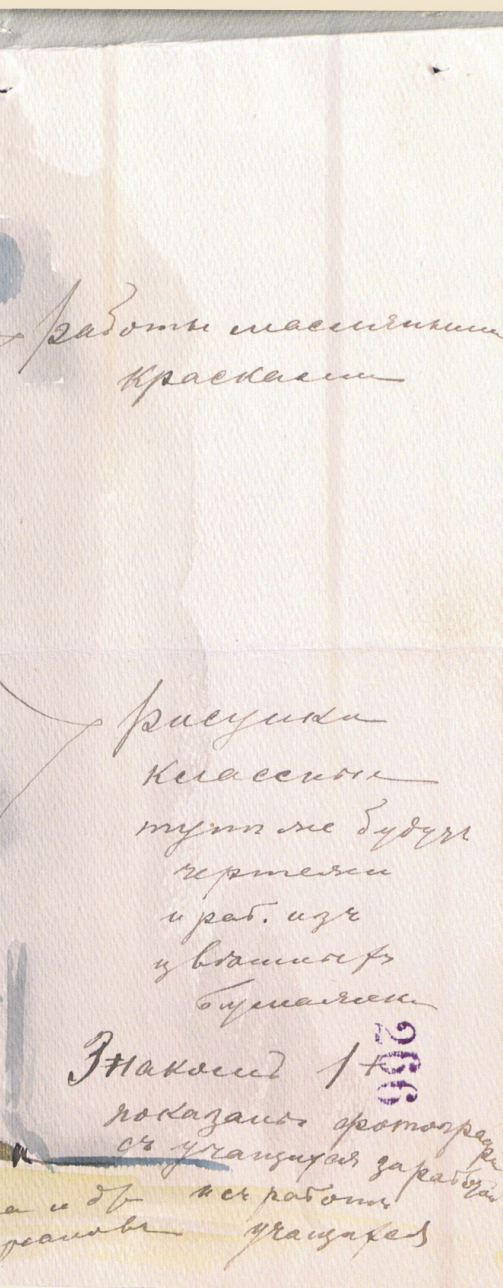 работы масляными
красками
рисунки
классные
тутъ же будутъ
чертежи
и раб. изъ
цвѣтныхъ
бумажекъ
266
Знакомъ 1+
показаны фотографи
съ учащихся за работой
а и др ихъ работы
учащихся